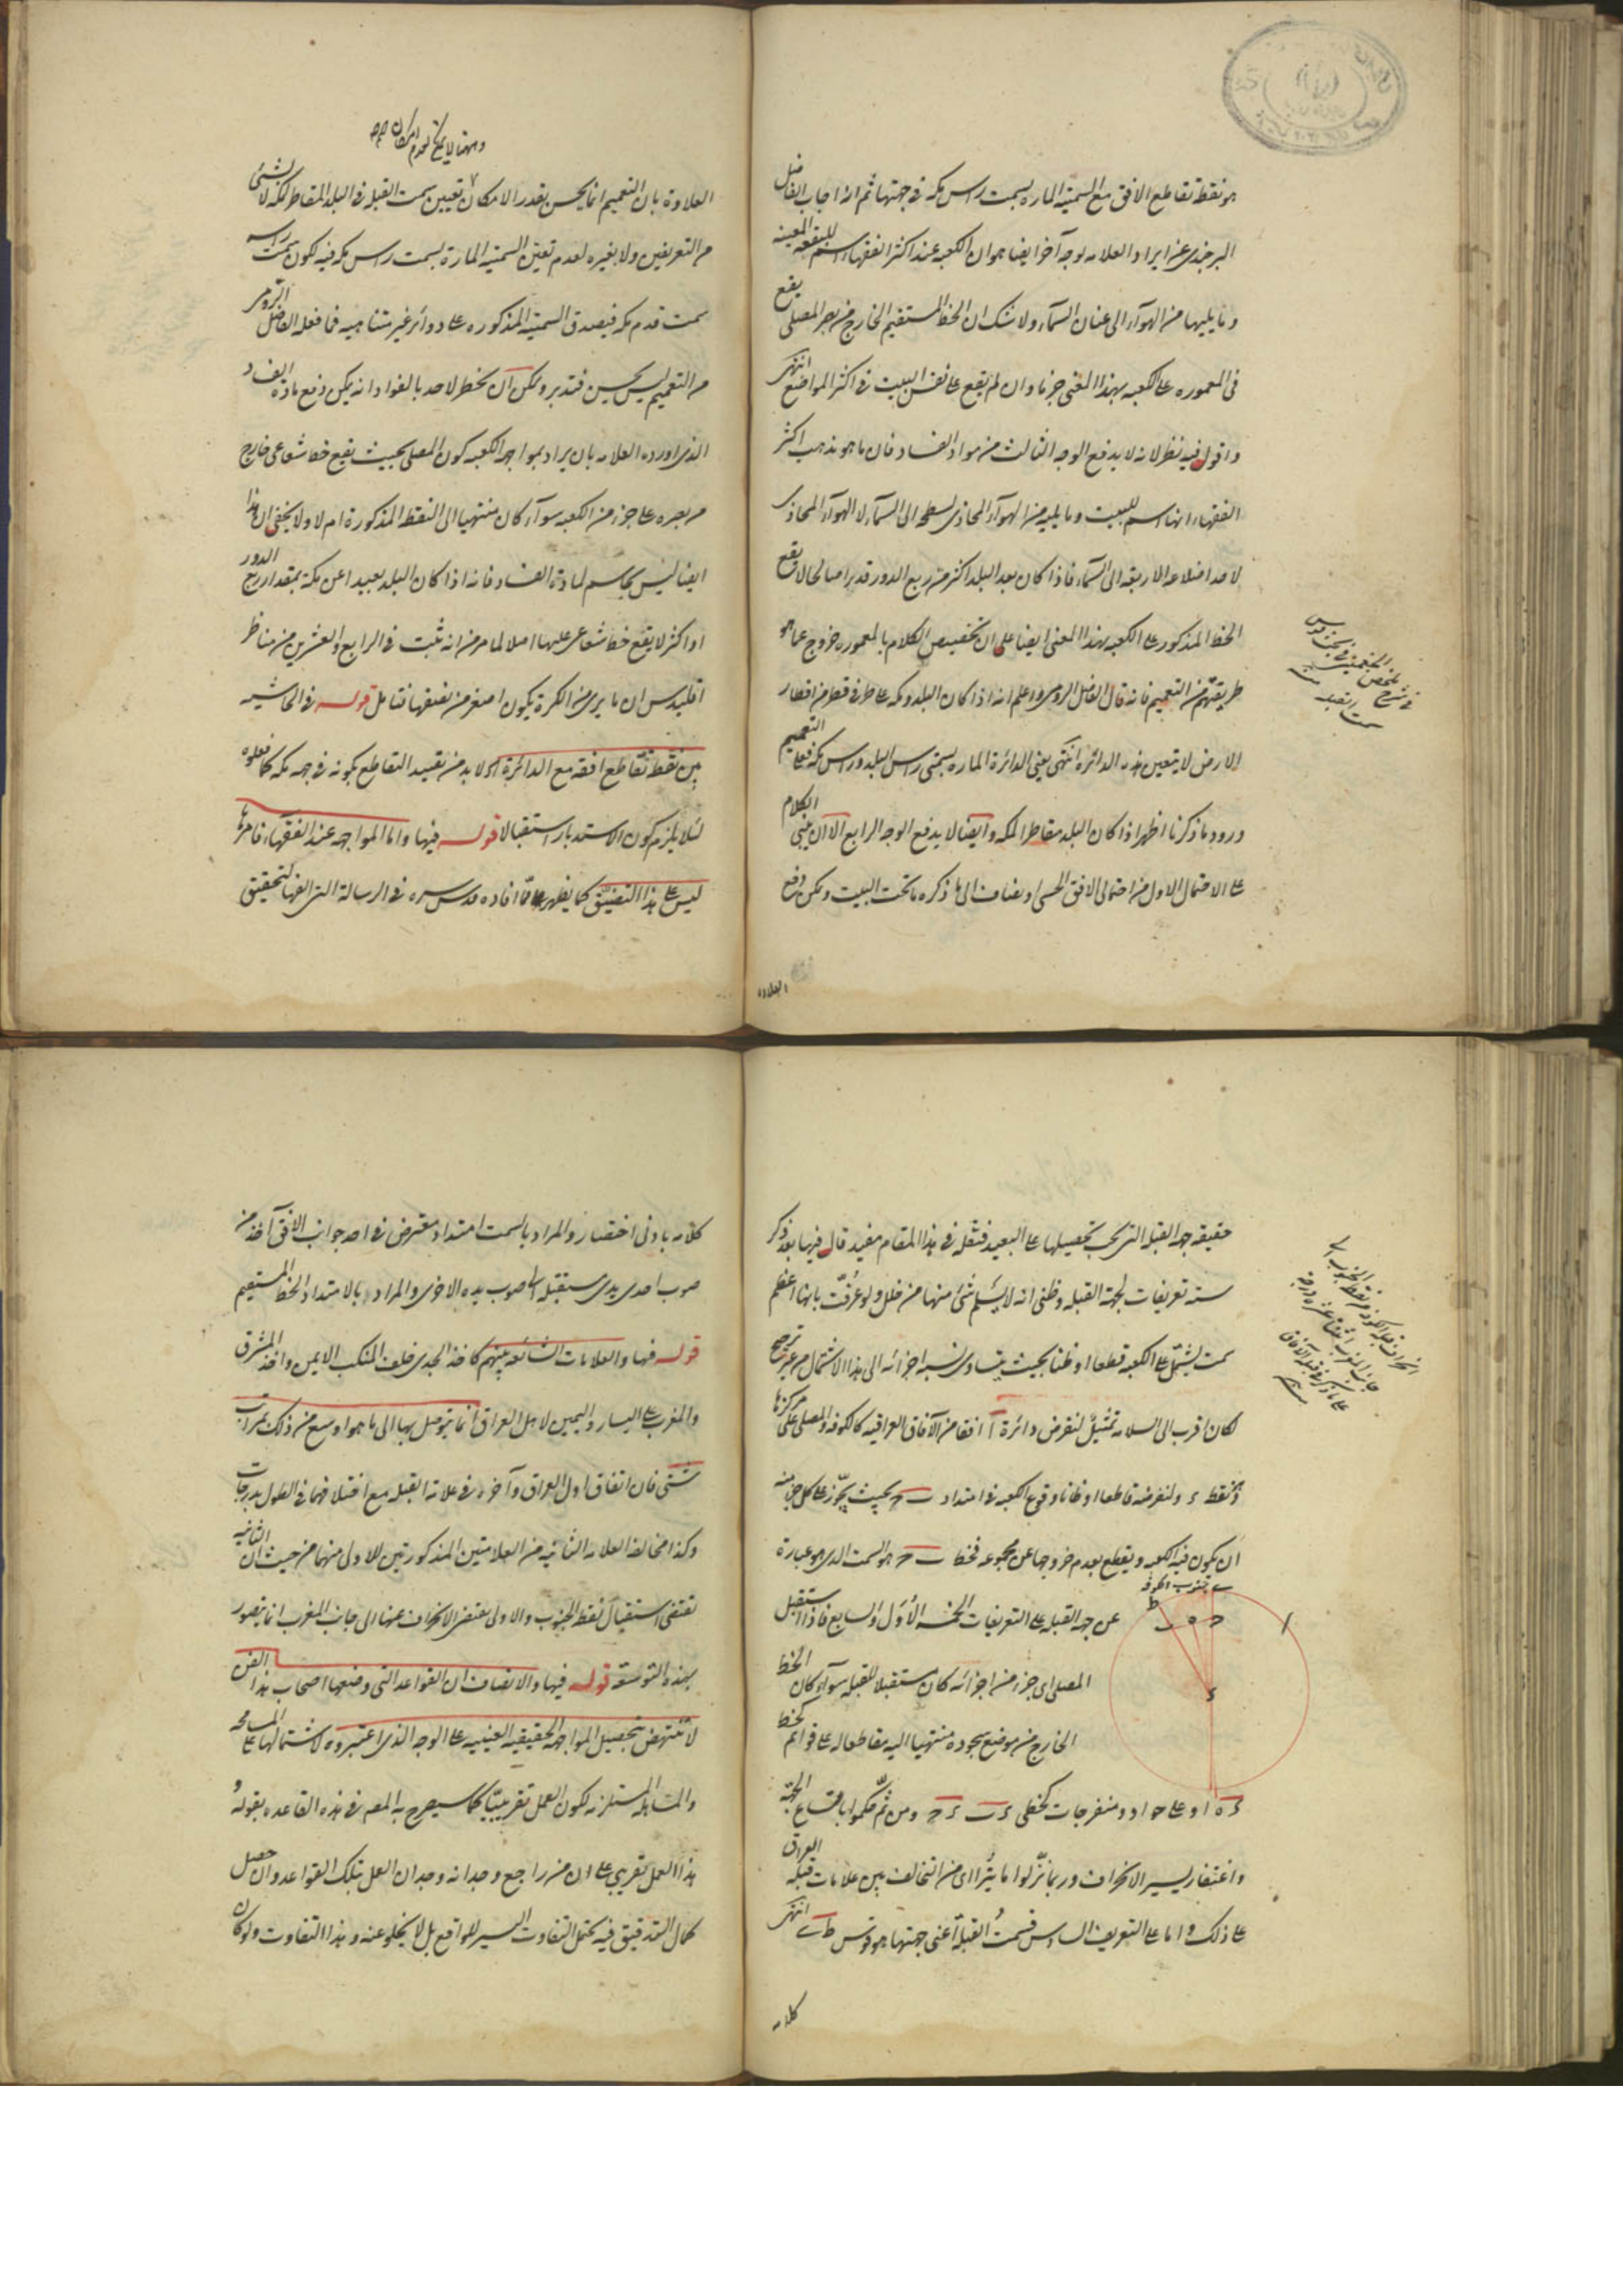 هو نقطة تقاطع الافق مع السمتية المارة بسمت راس مكه فى جهتها ثم انه اجاب الفاضل
البرجندى عن ايراد العلامه لوجه آخر ايضا هو ان الكعبه عند اكثر الفقهاء اسم للبقعه المعينه
وما يليها من الهوآء الى عنان السمآء ولا شك ان الخط المستقيم الخارج من بصر المصلى يقع
فى المعموره على الكعبه بهذا المعنى جزما وان لم يقع على نفس البيت فى اكثر المواضع انتهى
واقول فيه نظر لانه لا يدفع الوجه الثالث من مواد الفساد فان ما هو مذهب اكثر
الفقهاء انها اسم للبيت وما يليه من الهوآء المحاذى لسطحه الى السمآء لا الهوآء المحاذى
لاحد اضلاعه الاربعه الى السمآء فاذا كان بعد البلد اكثر من ربع الدور قدرا صالحا لا يقع
الخط المذكور على الكعبه بهذا المعنى ايضا على ان تخصيص الكلام بالمعموره خروج عما هو
طريقتهم من التعميم فانه قال الفاضل الرومى واعلم انه اذا كان البلد ومكه على طرفى قطر من اقطار
الارض لا يتعين هذه الدائره انتهى يعنى الدائرة الماره بسمتى راس البلد وراس مكه فعلى التعميم
ورود ما ذكرنا اظهر اذا كان البلد مقاطرا لمكه وايضا لا يدفع الوجه الرابع الا ان يبنى الكلام
على الاحتمال الاول من احتمالى الافق الحسى او يضاف الى ما ذكره ما تحت البيت ويمكن دفع
فى شرح ملخص الجغمينى فى بحث
سمت القبله
العلاوه
العلاوة بان التعميم انما يحسن بقدر الامكان تعيين سمت القبله فى البلد المقاطر لمكه لا بشئ
من التعريفين ولا بغيره لعدم تعين السمتيه المارة بسمت راس مكه فيه لكون سمت راسه
سمت قدم مكه فيصدق السمتية المذكوره على دوائر غير متناهيه فما فعله الفاضل الرومى
من التعميم ليس بحسن فتدبر ولكن ان يخطر لاحد بالفواد انه يمكن دفع مادة الفساد
الذى اورده العلامه بان يراد بمواجهة الكعبه كون المصلى بحيث يقع خط شعاعى خارج
من بصره على جزء من الكعبه سوآء كان منتهيا الى النقطه المذكورة ام لا ولا يخفى ان هذا
ايضا ليس بحاسم لمادة الفساد فانه اذا كان البلد بعيدا عن مكة بمقدار ربع الدور
او اكثر لا يقع خط شعاعى عليها اصلا لما مر من انه ثبت فى الرابع والعشرين من مناظر
اقليدس ان ما يرى من الكرة يكون اصغر من نصفها فتامل قوله فى الحاشيه
بين نقطة تقاطع افقه مع الدائرة اه لا بد من تقييد التقاطع بكونه فى جهه مكه كما فعلوه
لئلا يلزم كون الاستدبار استقبالا قوله فيها واما المواجهه عند الفقهاء فامرها
ليس على هذا التضييق كما يظهر مما افاده قدس سره فى الرسالة التى الفها لتحقيق
حقيقه جهه القبله التى يجب تحصيلها على البعيد فنقله فى هذا المقام مفيد قال فيها بعد ذكر
سته تعريفات لجهة القبله وظنى انه لا يسلم شئ منها من خلل ولو عرفت بانها اعظم
سمت يشتمل على الكعبه قطعا او ظنا بحيث يتساوى نسبه اجزائه الى هذا الاشتمال من غير ترجيح
لكان اقرب الى السلامه تمثيل لنفرض دائرة ا افقا من الآفاق العراقيه كالكوفه والمصلى على مركزها
وهو نقطه ء ولنفرضه قاطعا او ظانا وقوع الكعبه فى امتداد ب ح بحيث يجوز على كل جزء منه
ان يكون فيه الكعبه ويقطع بعدم خروجها عن مجموعه فخط ب ح هو السمت الذى هو عبارة
عن جهه القبله على التعريفات الخمسه الأول والسابع فاذا استقبل
المصلى اى جزء من اجزائه كان مستقبلا للقبله سوآء كان الخط
الخارج من موضع سجوده منتهيا اليه مقاطعا له على قوائم كخط
ء ه او على حواد ومنفرجات كخطى ء ب ء ح ومن ثم حكموا باتساع الجهة
واغتفار يسير الانحراف وربما نزلوا ما يتراءى من التخالف بين علامات قبله العراق
على ذلك واما على التعريف السادس فسمت القبله اعنى جهتها هو قوس ط ى انتهى
جنوب الكوفه
كلامه
كلامه بادنى اختصار والمراد بالسمت امتداد مفترض فى احد جوانب الافق آخذ من
صوب احدى يدى مستقبله الى صوب يده الاخرى والمراد بالامتداد الخط المستقيم
قوله فيها والعلامات الشائعه بينهم كاخذ الجدى خلف المنكب الايمن واخذ المشرق
والمغرب على اليسار واليمين لاهل العراق انما يتوصل بها الى ما هو اوسع من ذلك بمراتب
شتى فان اتفاق اول العراق وآخره فى علامة القبله مع اختلافهما فى الطول بدرجات
وكذا مخالفه العلامه الثانيه من العلامتين المذكورتين للاولى منهما من حيث ان الثانيه
تقتضى استقبال نقطه الجنوب والاولى يقتضى الانحراف عنها الى جانب المغرب انما يتصور
بهذه التوسعه قوله فيها والانصاف ان القواعد التى وضعها اصحاب هذا الفن
لا تنتهض بتحصيل المواجهة الحقيقيه العينيه على الوجه الذى اعتبروه لاشتمالها على المسامحه
والمساهله المستلزمه لكون العمل تقريبيا كما سيصرح به المصه فى هذه القاعده بقوله
هذا العمل تقريبى على ان من راجع وجدانه وجدان العمل بتلك القواعد وان حصل
كمال التدقيق فيه يحتمل التفاوت اليسير للواقع بل لا يخلو عنه وهذا التفاوت ولو كان